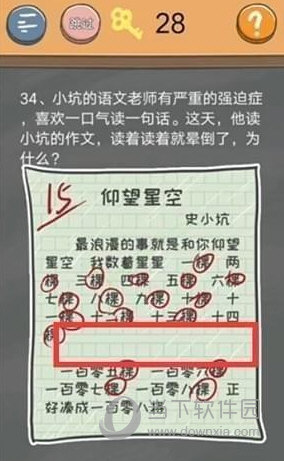 跳过
28
?
34、小坑的语文老师有严重的强迫症
，喜欢一口气读一句话。这天，他读
小坑的作文，读着读着就晕倒了，为
什么？
15
仰望星空
史小坑
最浪漫的事就是和你仰望
星空 我数着星星 一棵 两
棵 三棵 四棵 五棵 六棵
七棵 八棵 九棵 十棵 十
一棵 十二棵 十三棵 十四
棵
一百零五棵 一百零六棵
一百零七棵 一百零八棵 正
好凑成一百零八将
当下软件园
www.downxia.com